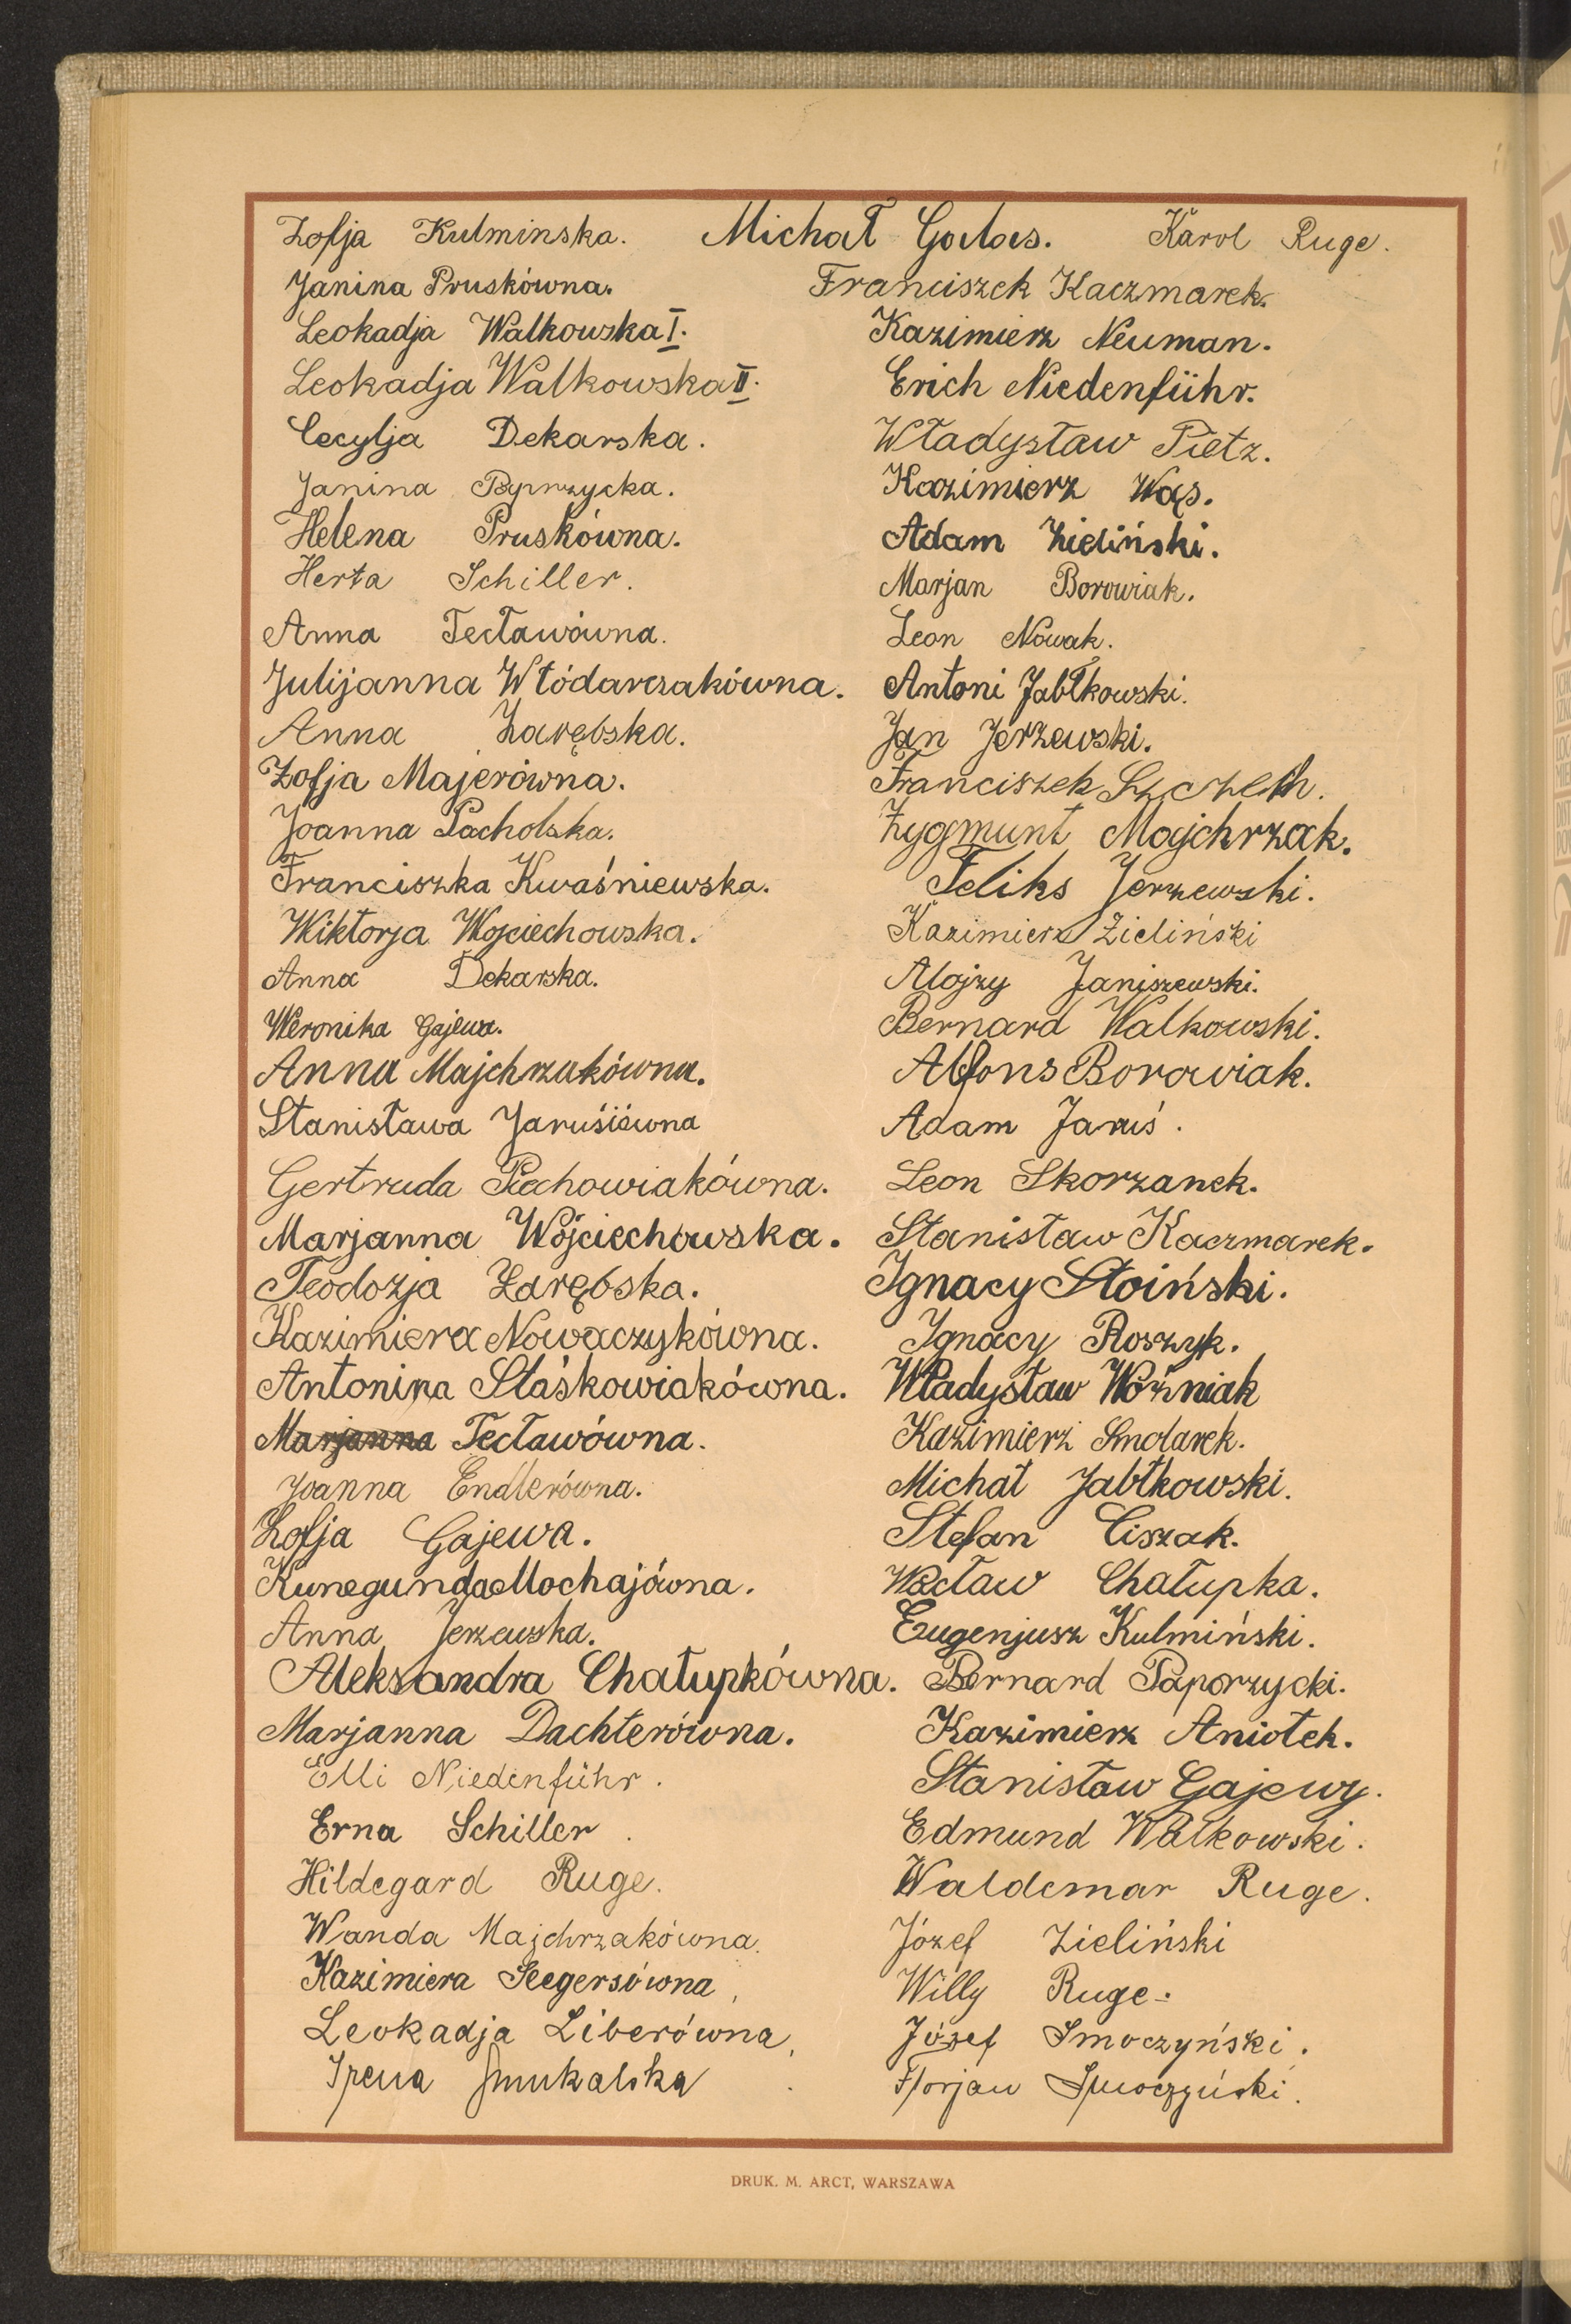 Zofja Kulminska. Michał Galas. Karol Ruge.
Janina Pruskówna. Franciszek Kaczmarek.
Leokadja Walkowska I. Kazimierz Neuman.
Leokadja Walkowska II. Erich Niedenführ.
Cecylja Dekarska. Władysław Pietz.
Janina Kazimierz Wąs.
Helena Pruskówna. Adam Zieliński.
Herta Schiller. Marjan Borowiak.
Anna Tecławówna. Leon Nowak.
Julijanna Włódarczakówna. Antoni Jabłkowski.
Anna Zarębska. Jan Jerzewski.
Zofja Majerówna. Franciszek Szczech.
Joanna Pacholska. Zygmunt Majchrzak.
Franciszka Kwaśniewska. Feliks Jerzewski.
Wiktorja Wojciechowska. Kazimierz Zieliński
Anna Dekarska. Alojzy Janiszewski.
Weronika Gajewa. Bernard Walkowski.
Anna Majchrzakówna. Alfons Borowiak.
Stanisława Jaruśiówna Adam Jaruś.
Gertruda Piechowiakówna. Leon Skorzanek.
Marjanna Wojciechowska. Stanisław Kaczmarek.
Teodozja Zarębska. Ignacy Stoiński.
Kazimiera Nowaczykówna. Ignacy Roszyk.
Antonina Stáśkowiakówna. Władysław Woźniak
Marjanna Tecławówna. Kazimierz Smolarek.
Joanna Endlerówna. Michał Jabłkowski.
Zofja Gajewa. Stefan Ciszak.
Kunegunda Mochajówna. Wacław Chałupka.
Anna Jerzewska. Eugenjusz Kulmiński.
Aleksandra Chałupkówna. Bernard Paporzycki.
Marjanna Dachterówna. Kazimierz Aniołek.
Elli Niedenführ. Stanisław Gajewy.
Erna Schiller. Edmund Walkowski.
Hildegard Ruge. Waldemar Ruge.
Wanda Majchrzakówna. Józef Zieliński
Kazimiera Seegersówna, Willy Ruge.
Leokadja Liberówna, Józef Smoczyński.
Irena Smukalska. Florjan Smoczyński.
DRUK. M. ARCT, WARSZAWA